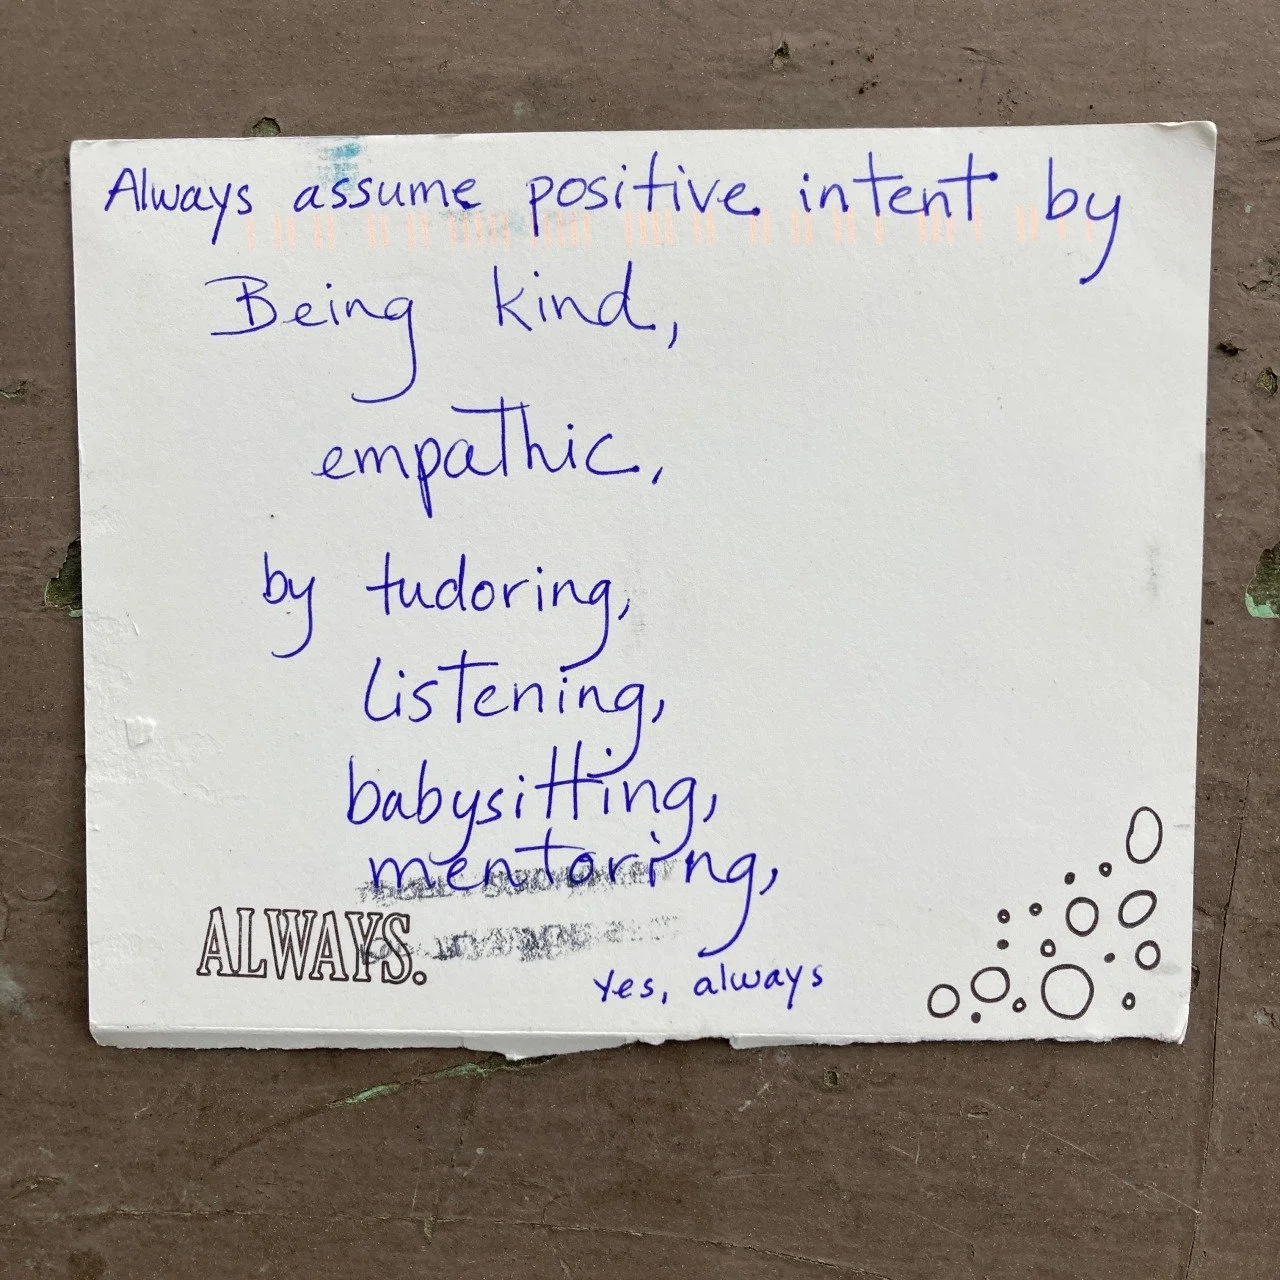 Always assume positive intent by
Being kind,
empathic,
by tudoring,
listening,
babysitting,
mentoring,
ALWAYS.
Yes, always